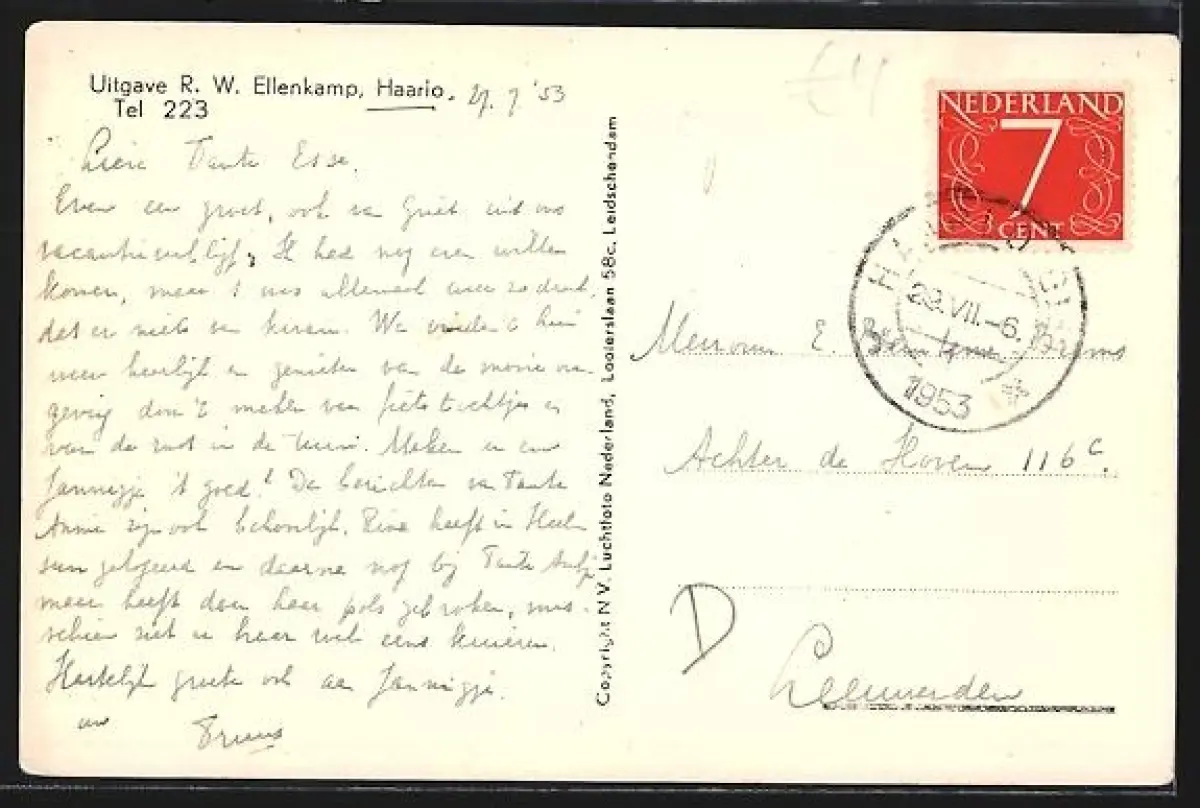 Uitgave R. W. Ellenkamp, Haarlo. 27.7'53
Tel 223
Lieve Tante Esse.
Even een groet, ook van Griet uit ons
vacantieverblijf. Ik had nog even willen
komen, maar 't was allemaal weer zo druk,
dat er niets van kwam. We vinden 't hier
weer heerlijk en genieten van de mooie om-
geving door 't maken van fietstochtjes en
van de rust in de tuin. Maken en
Jannigje 't goed? De berichten van Tante
Annie zijn ook behoorlijk. Eine heeft in Heeren
gelogeerd en daarna nog bij Tante
maar heeft daar haar pols gebroken, mis-
schien ziet u haar wel eens.
Hartelijk groeten ook aan Jannigje.
uw Truus
Copyright N.V. Luchtfoto Nederland, Looierslaan 58c, Leidschendam
NEDERLAND
7
CENT
29.VII.-6.
1953
Mevrouw E.
Achter de Hoven 116c.
D
Leeuwarden